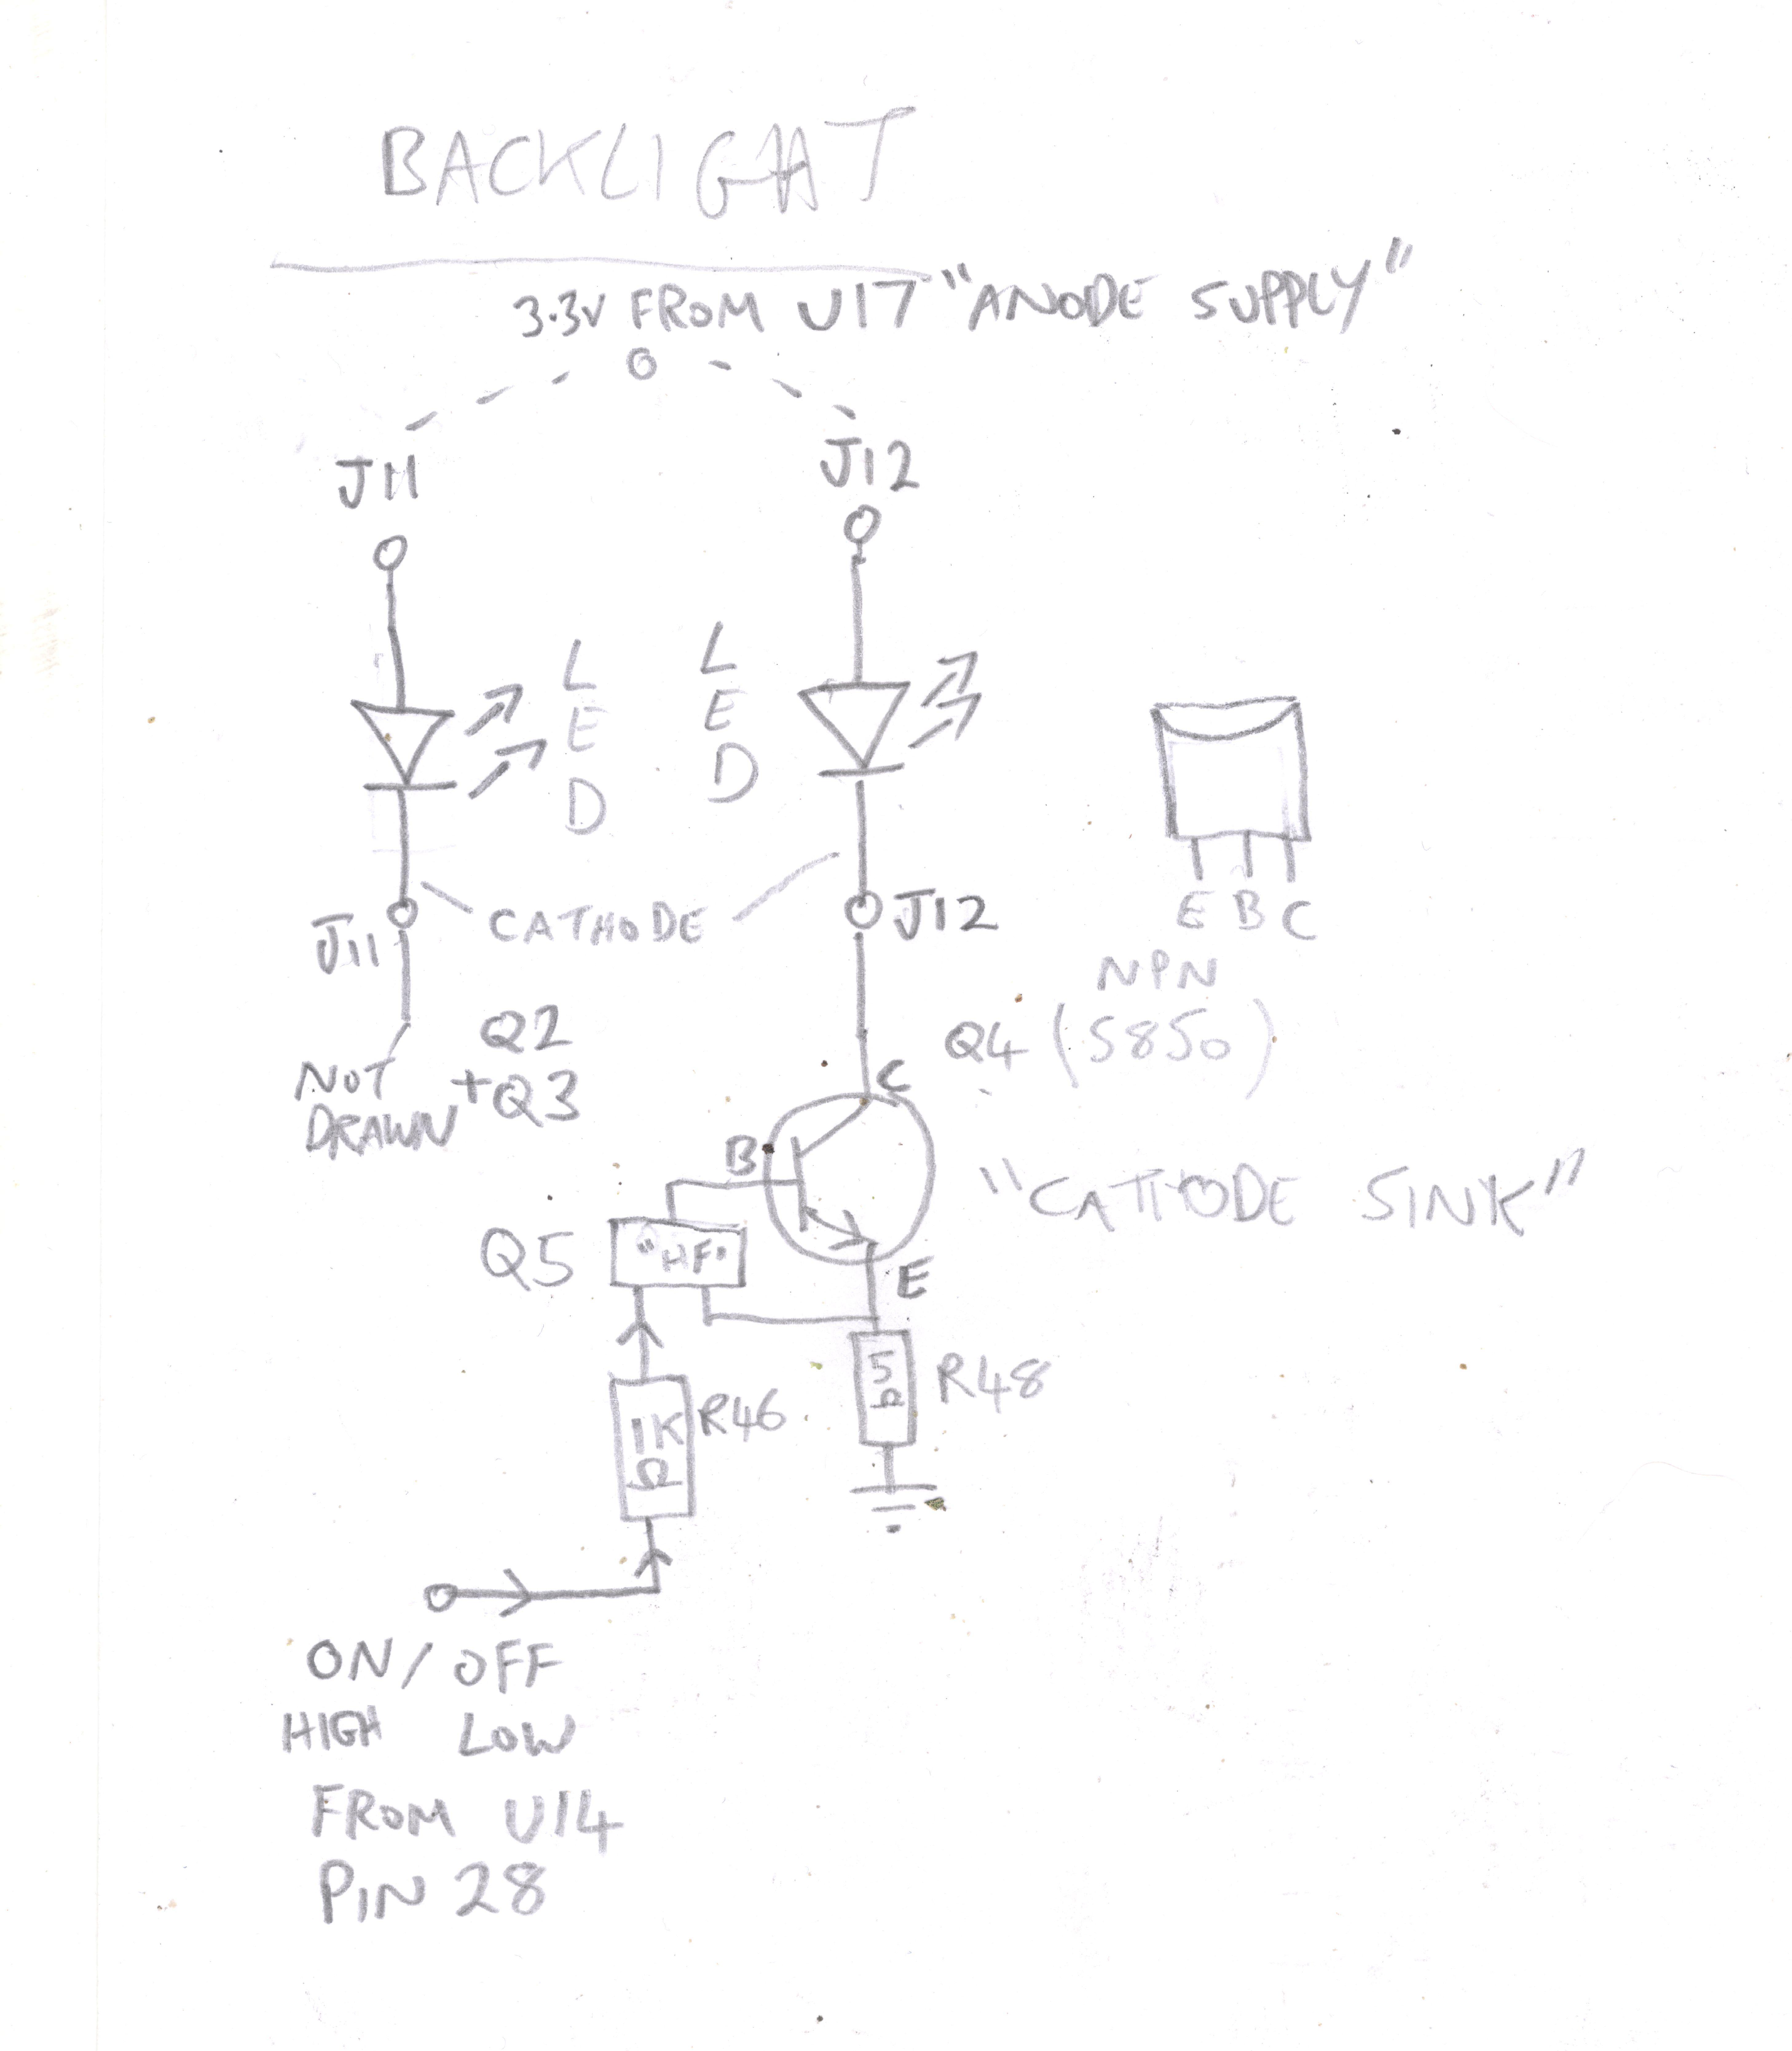 BACKLIGHT
3.3V FROM U17 "ANODE SUPPLY"
J11
J12
LED
LED
J11
CATHODE
J12
E B C
NPN
Q4 (S850)
NOT DRAWN
Q2
+Q3
C
B
"CATHODE SINK"
Q5
"HF"
E
5Ω
R48
1KΩ
R46
ON/OFF
HIGH LOW
FROM U14
PIN 28